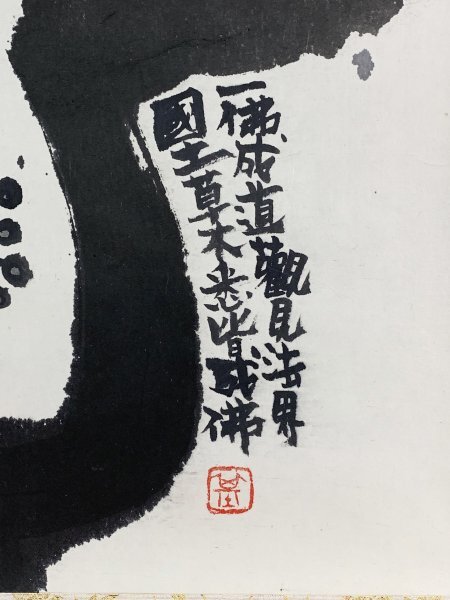 一佛成道觀見法界
國土草木悉皆成佛